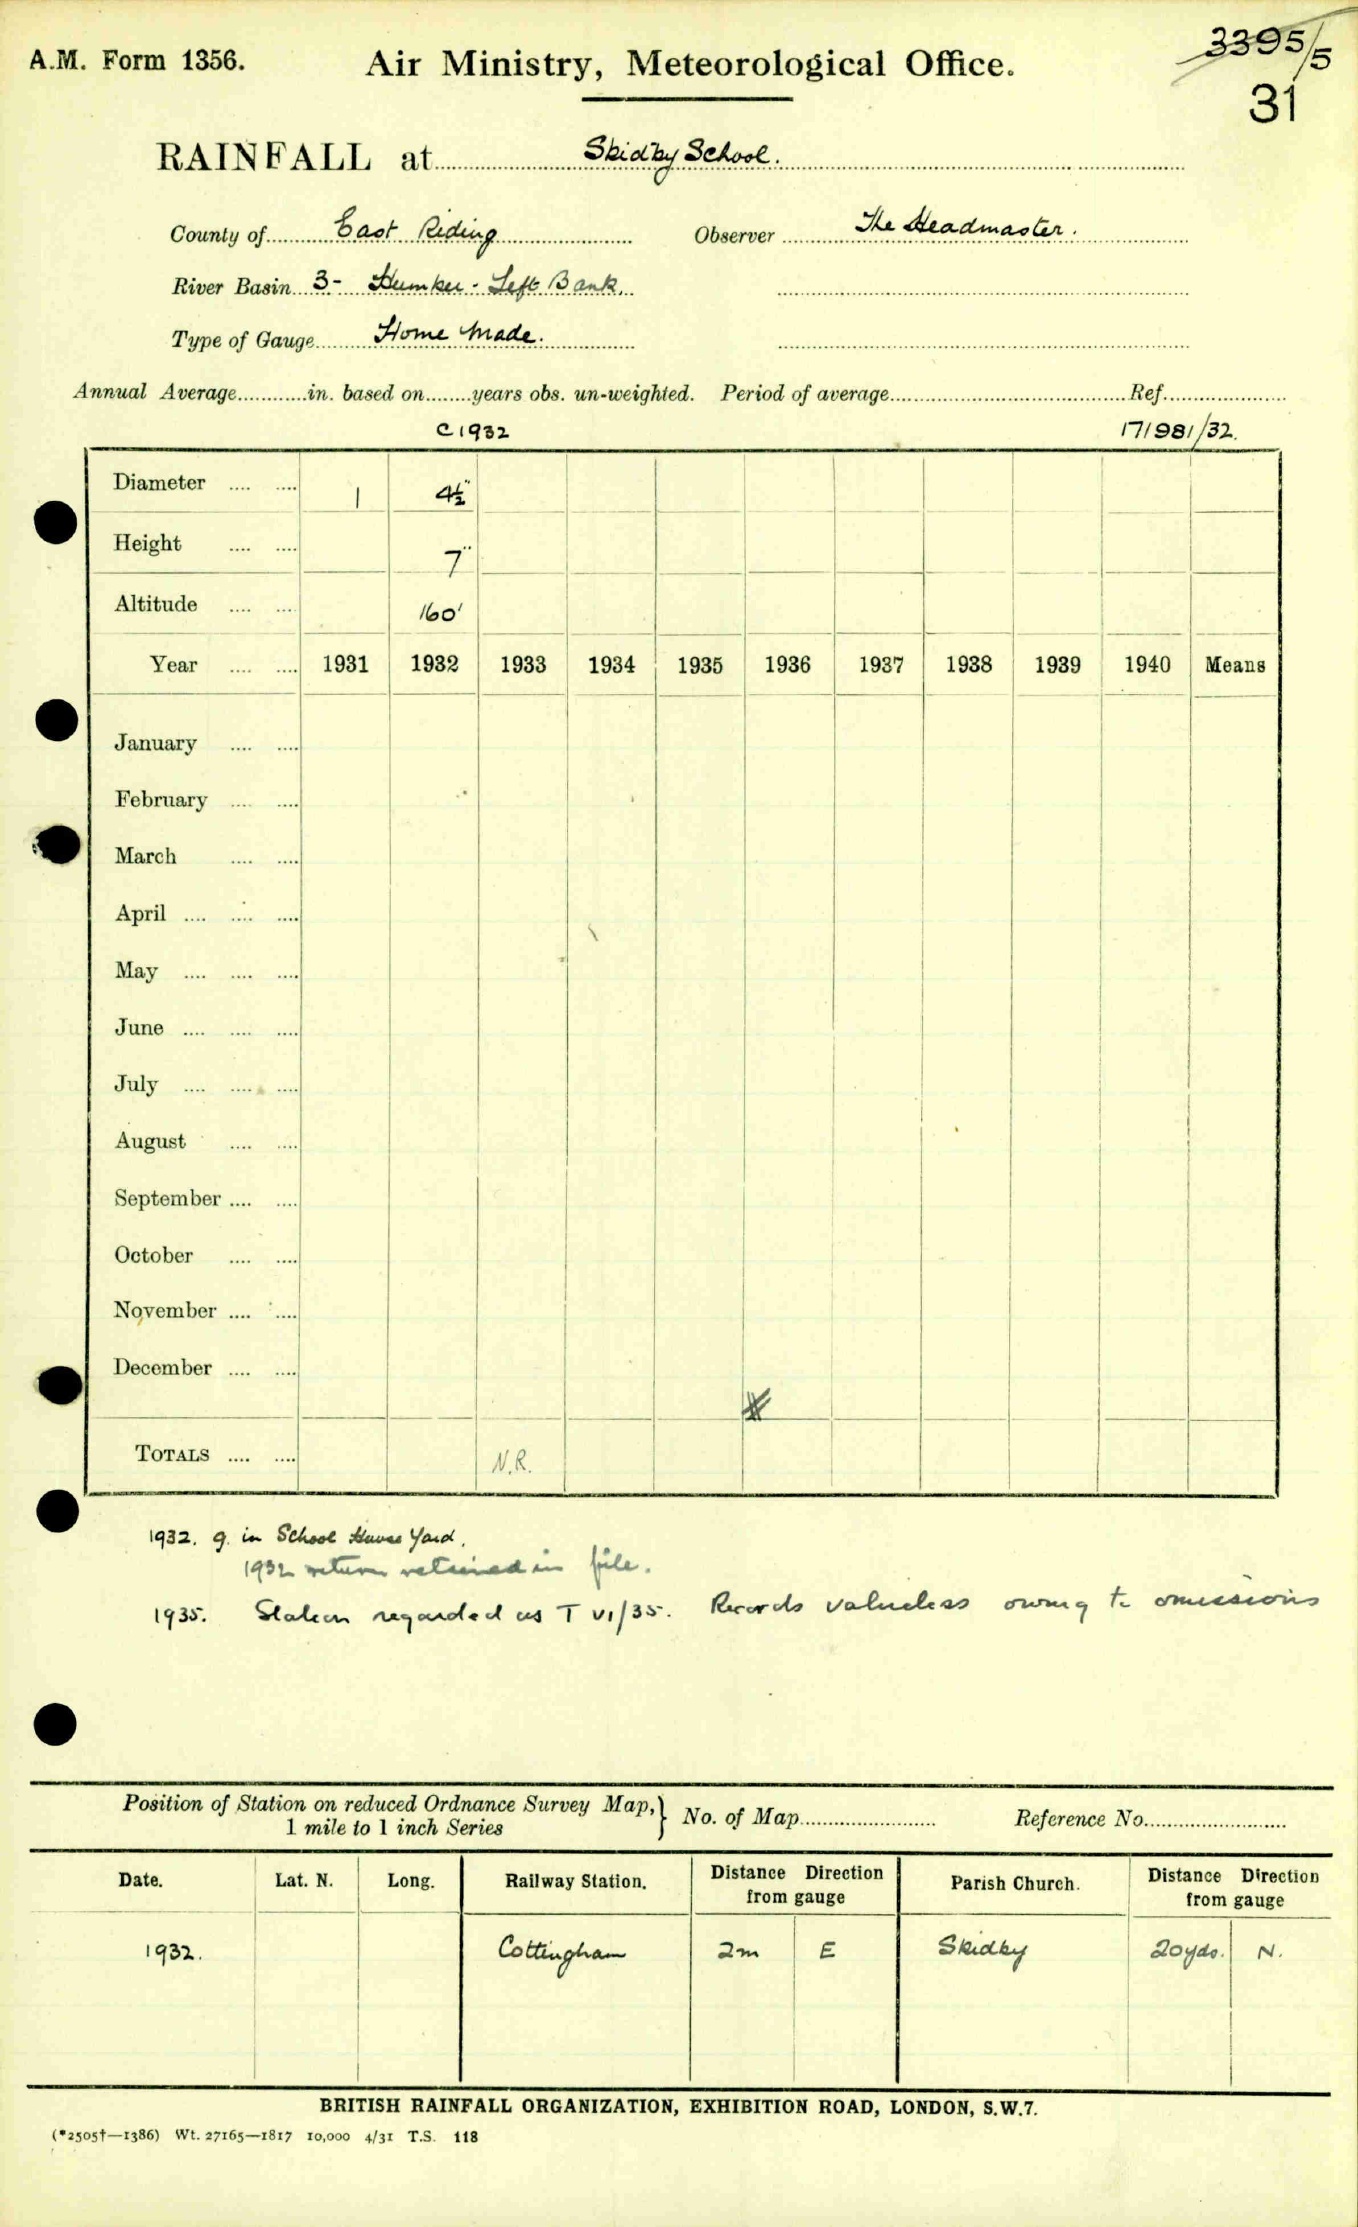 A.M. Form 1356.
Air Ministry, Meteorological Office.
3395/5
31
RAINFALL at Skidby School.
County of East Riding Observer The Headmaster.
River Basin 3- Humber - Left Bank.
Type of Gauge Home Made.
Annual Average............in. based on........years obs. un-weighted. Period of average............Ref............
C1932 171981/32.
Diameter .... .... 1 4½"
Height .... .... 7"
Altitude .... .... 160'
Year .... .... 1931 1932 1933 1934 1935 1936 1937 1938 1939 1940 Means
January .... ....
February .... ....
March .... ....
April .... .... ....
May .... .... ....
June .... .... ....
July .... .... ....
August .... ....
September .... ....
October .... ....
November .... ....
December .... ....
TOTALS .... .... N.R.
1932. g. in School House Yard.
1932 return retained in file.
1935. Station regarded as T VI/35. Records valueless owing to omissions
Position of Station on reduced Ordnance Survey Map,} No. of Map............ Reference No............
1 mile to 1 inch Series
Date. Lat. N. Long. Railway Station. Distance Direction from gauge Parish Church. Distance Direction from gauge
1932. Cottingham 2m E Skidby 20yds. N.
BRITISH RAINFALL ORGANIZATION, EXHIBITION ROAD, LONDON, S.W.7.
(*2505†—1386) Wt. 27165—1817 10,000 4/31 T.S. 118